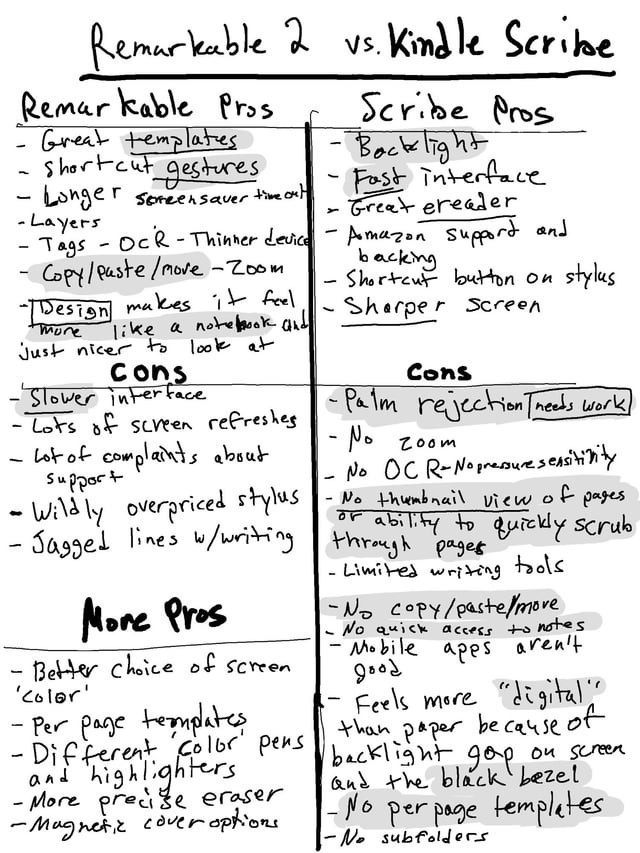 Remarkable 2 vs. Kindle Scribe
Remarkable Pros
- Great templates
- shortcut gestures
- Longer screensaver timeout
- Layers
- Tags - OCR - Thinner device
- Copy/paste/move - Zoom
- Design makes it feel
more like a notebook and
just nicer to look at
Cons
- Slower interface
- Lots of screen refreshes
- Lot of complaints about
support
- Wildly overpriced stylus
- Jagged lines w/writing
More Pros
- Better choice of screen
'color'
- Per page templates
- Different 'color' pens
and highlighters
- More precise eraser
- Magnetic cover options
Scribe Pros
- Backlight
- Fast interface
- Great ereader
- Amazon support and
backing
- Shortcut button on stylus
- Sharper screen
Cons
- Palm rejection needs work
- No zoom
- No OCR - No pressure sensitivity
- No thumbnail view of pages
or ability to quickly scrub
through pages
- Limited writing tools
- No copy/paste/move
- No quick access to notes
- Mobile apps aren't
good
- Feels more "digital"
than paper because of
backlight gap on screen
and the black bezel
- No per page templates
- No subfolders